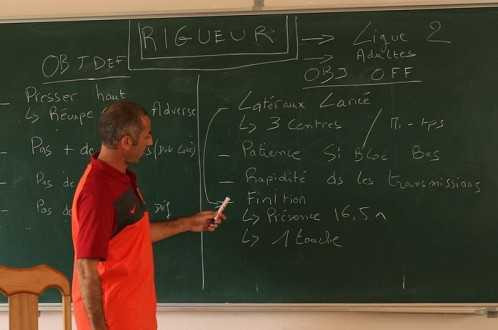 RIGUEUR → Ligue 2
Adultes
OBJ DEF
OBJ OFF
Presser haut
↳ Récupe Adverse
Pas + de
Pas de
Pas
- Latéraux Lancé
↳ 3 Centres / Mi-tps
- Patience Si Bloc Bas
- Rapidité ds les transmissions
- Finition
↳ Présence 16,5 m
↳ 1 touche